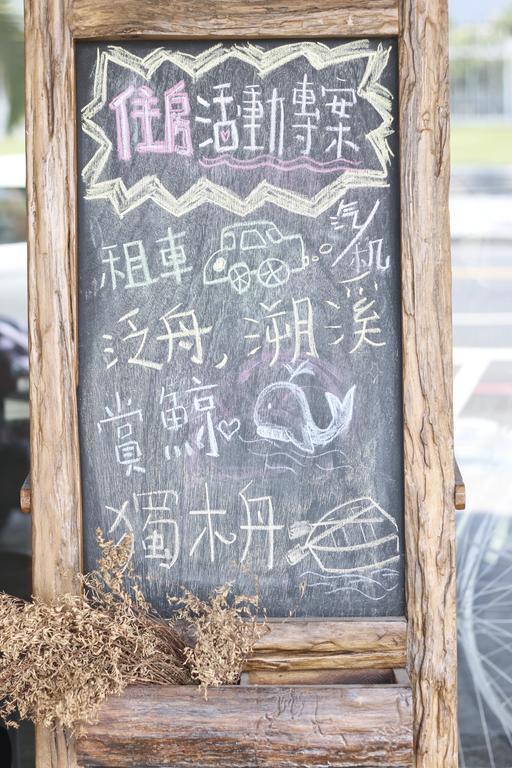 住房活動專案
租車 汽/机
泛舟,溯溪
賞鯨
獨木舟